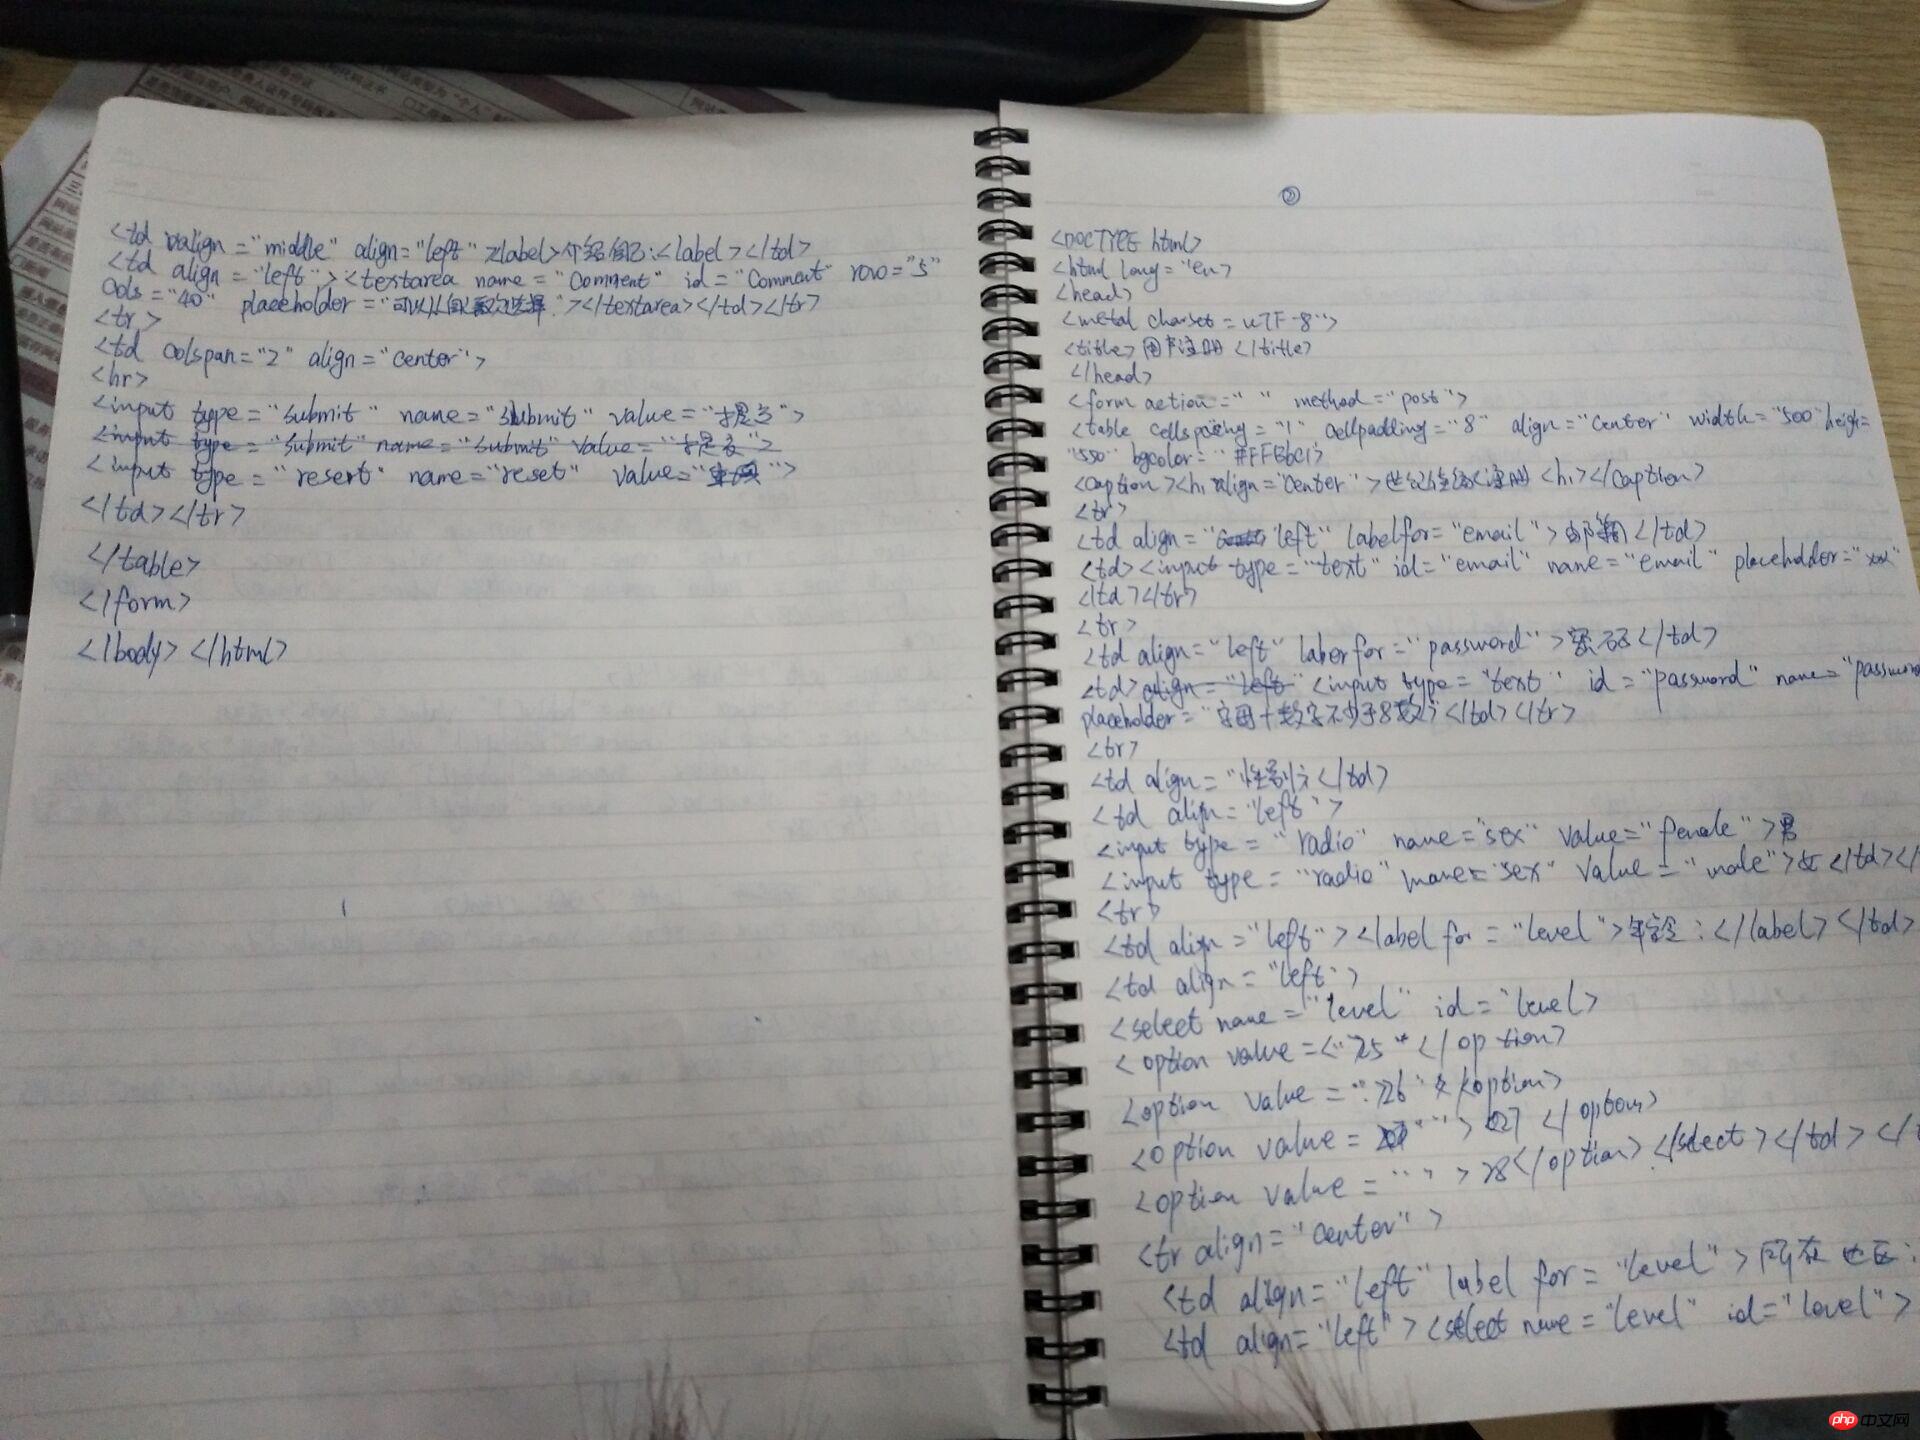 <td valign="middle" align="left" <label>介绍自己:<label></td>
<td align="left">:<textarea name="Comment" id="Comment" row="5"
Cols="40" placeholder="可以从 "></textarea></td></tr>
<tr>
<td colspan="2" align="center">
<hr>
<input type="submit" name="submit" value="提交">
<input type="submit" name="submit" value="提交">
<input type="resert" name="reset" value=" ">
</td></tr>
</table>
</form>
</body></html>
②
<DOCTYPE html>
<html lang="en>
<head>
<metal charset=UTF-8">
<title>用户注册</title>
</head>
<form action=" " method="post">
<table cellspacing="1" cellpadding="8" align="center" width="500" heigh=
"550" bgcolor="#FFBbC1>
<caption><h1 align="center">世纪佳缘注册<h1></caption>
<tr>
<td align="left" labelfor="email">邮箱</td>
<td><input type="text" id="email" name="email" placeholder="xxx"
</td></tr>
<tr>
<td align="left" laberfor="password">密码</td>
<td>align="left" <input type="text" id="password" name="password
placeholder="字母+数字不少于8数字</td></tr>
<tr>
<td align="性别:</td>
<td align="left">
<input type="radio" name="sex" value="female">男
<input type="radio" name="sex" value="male">女</td></
<tr>
<td align="left"><label for="level">年龄:</label></td>
<td align="left">
<select name="level" id="level>
<option value=<"25"</option>
<option value=":>26" </option>
<option value= "">27 </option>
<option value="">28</option></select></td></
<tr align="center">
<td align="left" label for="level">所在地区:
<td align="left"><select name="level" id="level">
php 中文网